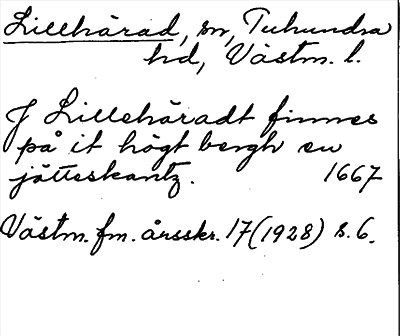 Lillhärad, sn, Tuhundra
hd, Västm. l.
J Lillehäradt finnes
på it högt bergh en
jätteskantz. 1667
Västm. fm. årsskr. 17 (1928) s. 6.